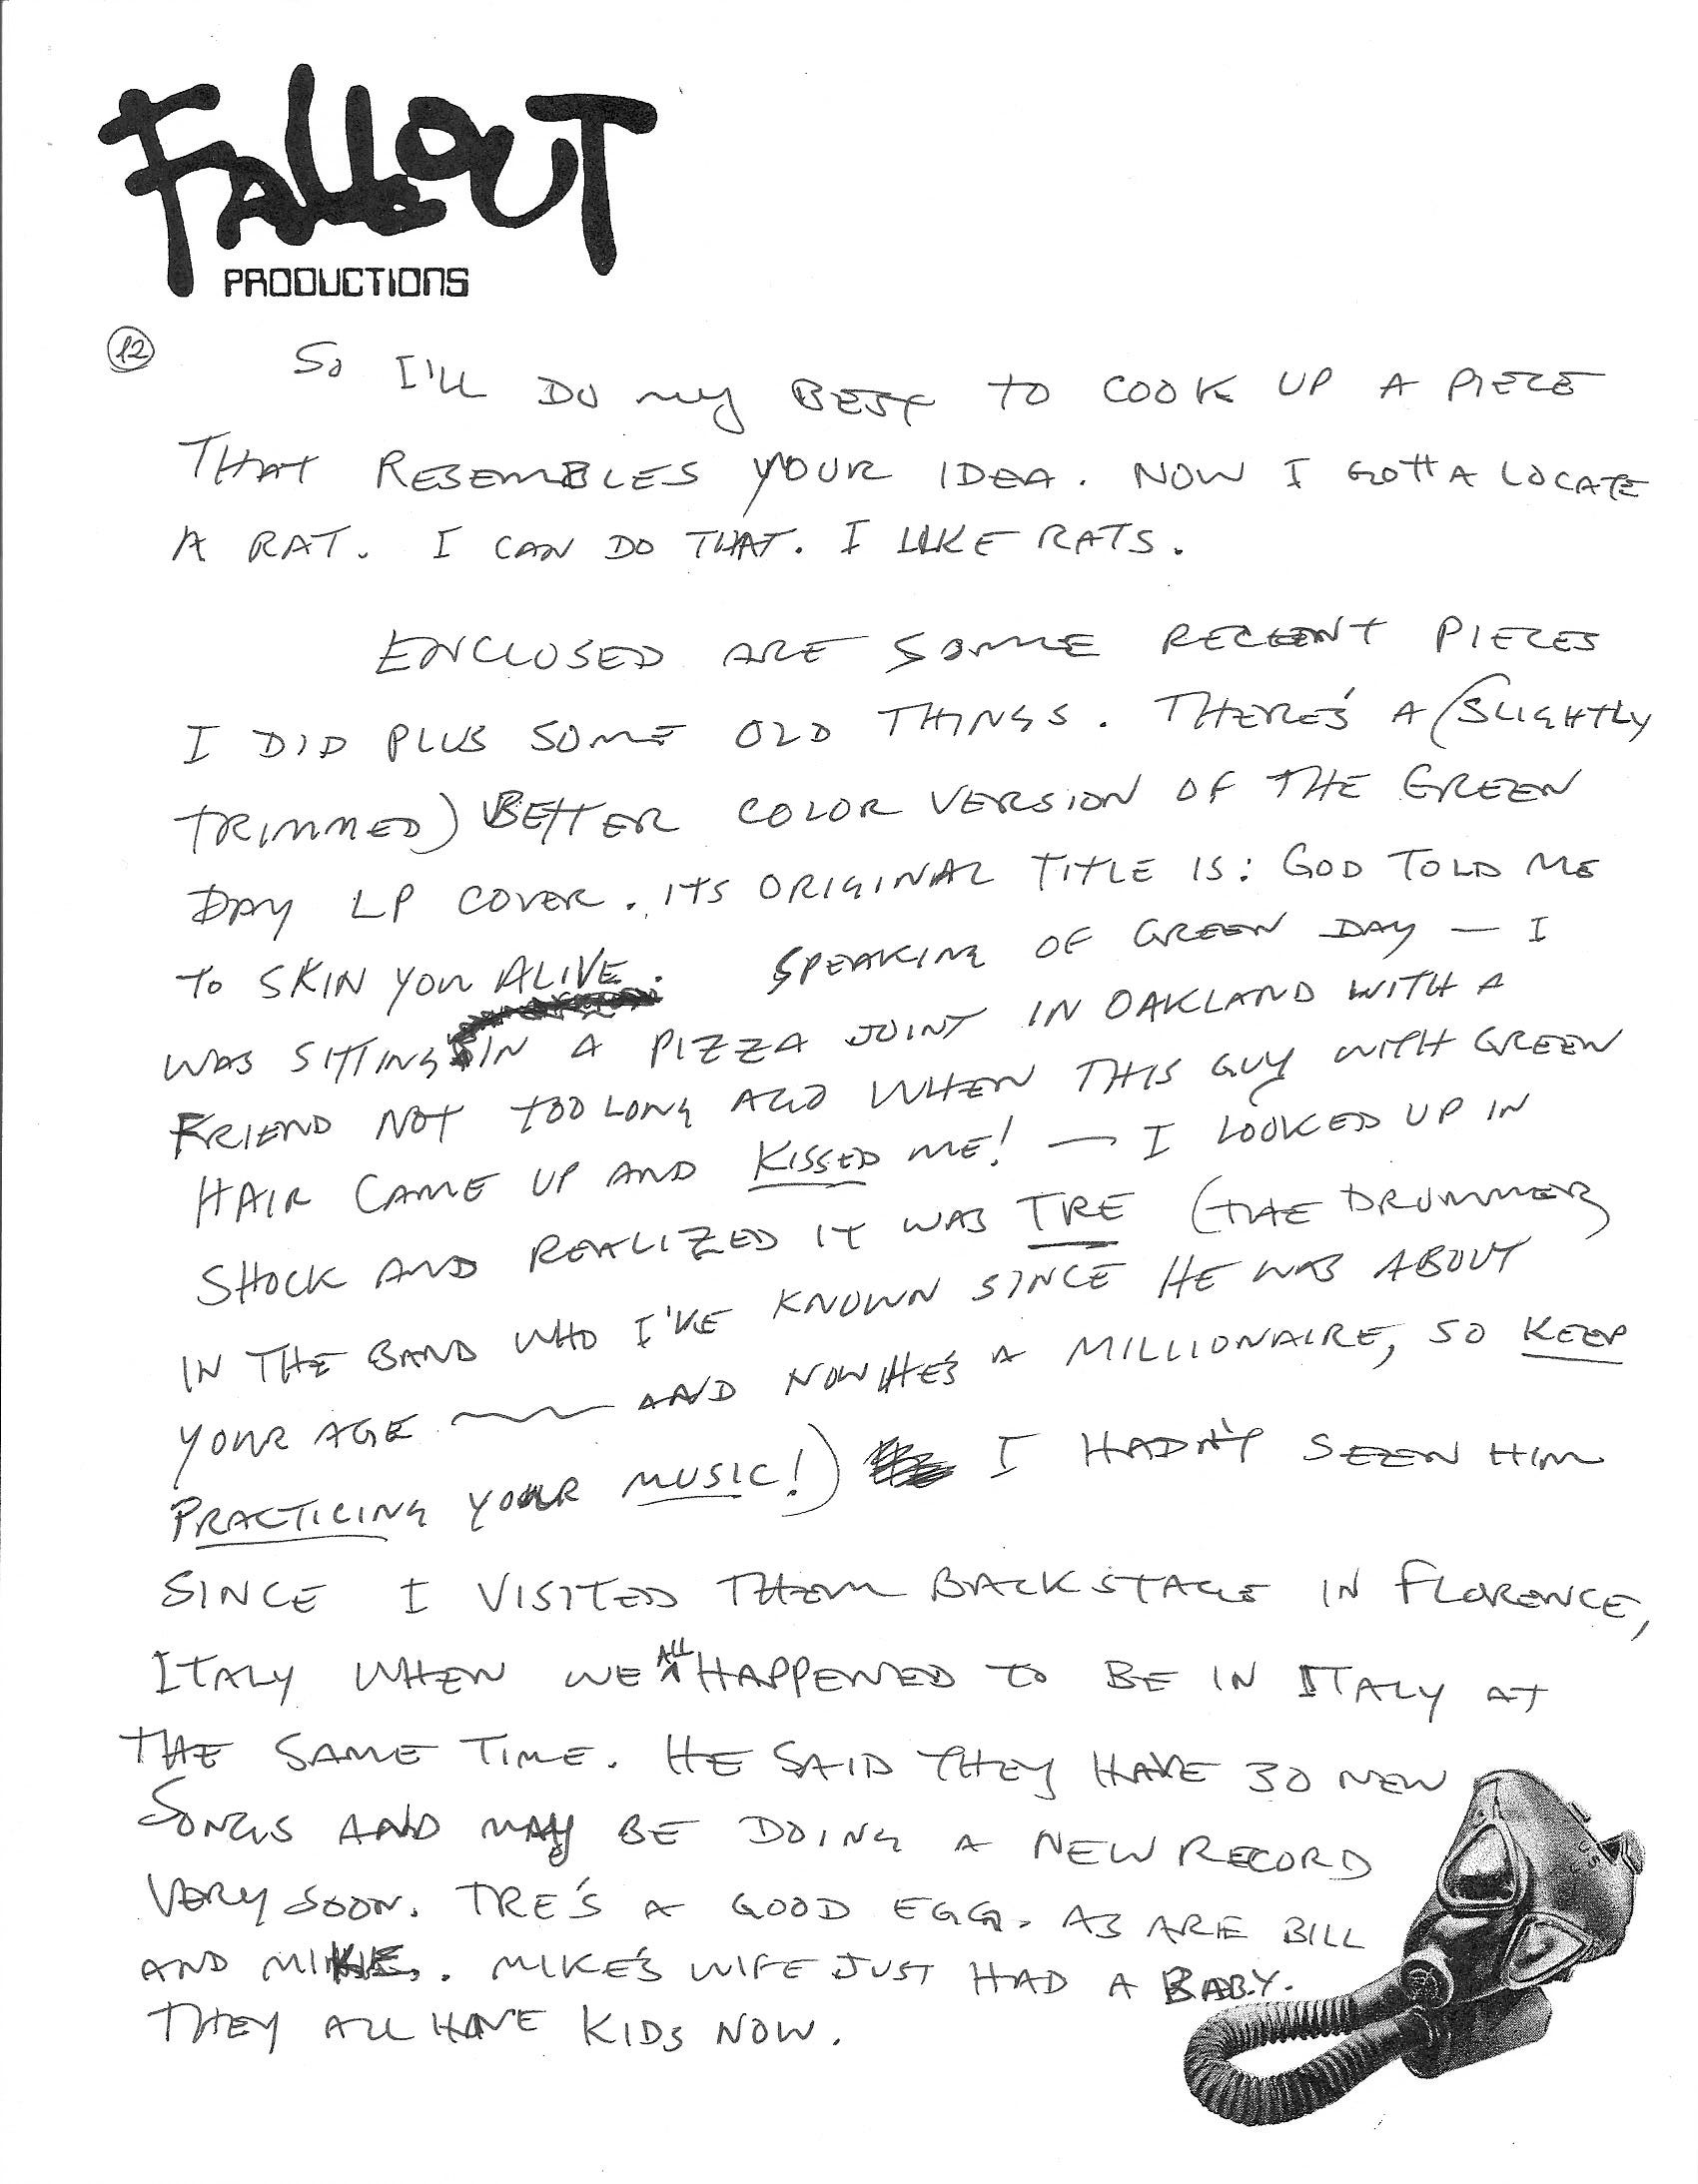 FALLOUT
PRODUCTIONS
12
SO I'LL DO MY BEST TO COOK UP A PIECE
THAT RESEMBLES YOUR IDEA. NOW I GOTTA LOCATE
A RAT. I CAN DO THAT. I LIKE RATS.
ENCLOSED ARE SOME RECENT PIECES
I DID PLUS SOME OLD THINGS. THERE'S A (SLIGHTLY
TRIMMED) BETTER COLOR VERSION OF THE GREEN
DAY LP COVER. ITS ORIGINAL TITLE IS: GOD TOLD ME
TO SKIN YOU ALIVE. SPEAKING OF GREEN DAY — I
WAS SITTING IN A PIZZA JOINT IN OAKLAND WITH A
FRIEND NOT TOO LONG AGO WHEN THIS GUY WITH GREEN
HAIR CAME UP AND KISSED ME! — I LOOKED UP IN
SHOCK AND REALIZED IT WAS TRE (THE DRUMMER
IN THE BAND WHO I'VE KNOWN SINCE HE WAS ABOUT
YOUR AGE — AND NOW HE'S A MILLIONAIRE, SO KEEP
PRACTICING YOUR MUSIC!) I HADN'T SEEN HIM
SINCE I VISITED THEM BACKSTAGE IN FLORENCE,
ITALY WHEN WE ALL HAPPENED TO BE IN ITALY AT
THE SAME TIME. HE SAID THEY HAVE 30 NEW
SONGS AND MAY BE DOING A NEW RECORD
VERY SOON. TRE'S A GOOD EGG. AS ARE BILL
AND MIKE. MIKE'S WIFE JUST HAD A BABY.
THEY ALL HAVE KIDS NOW.
US